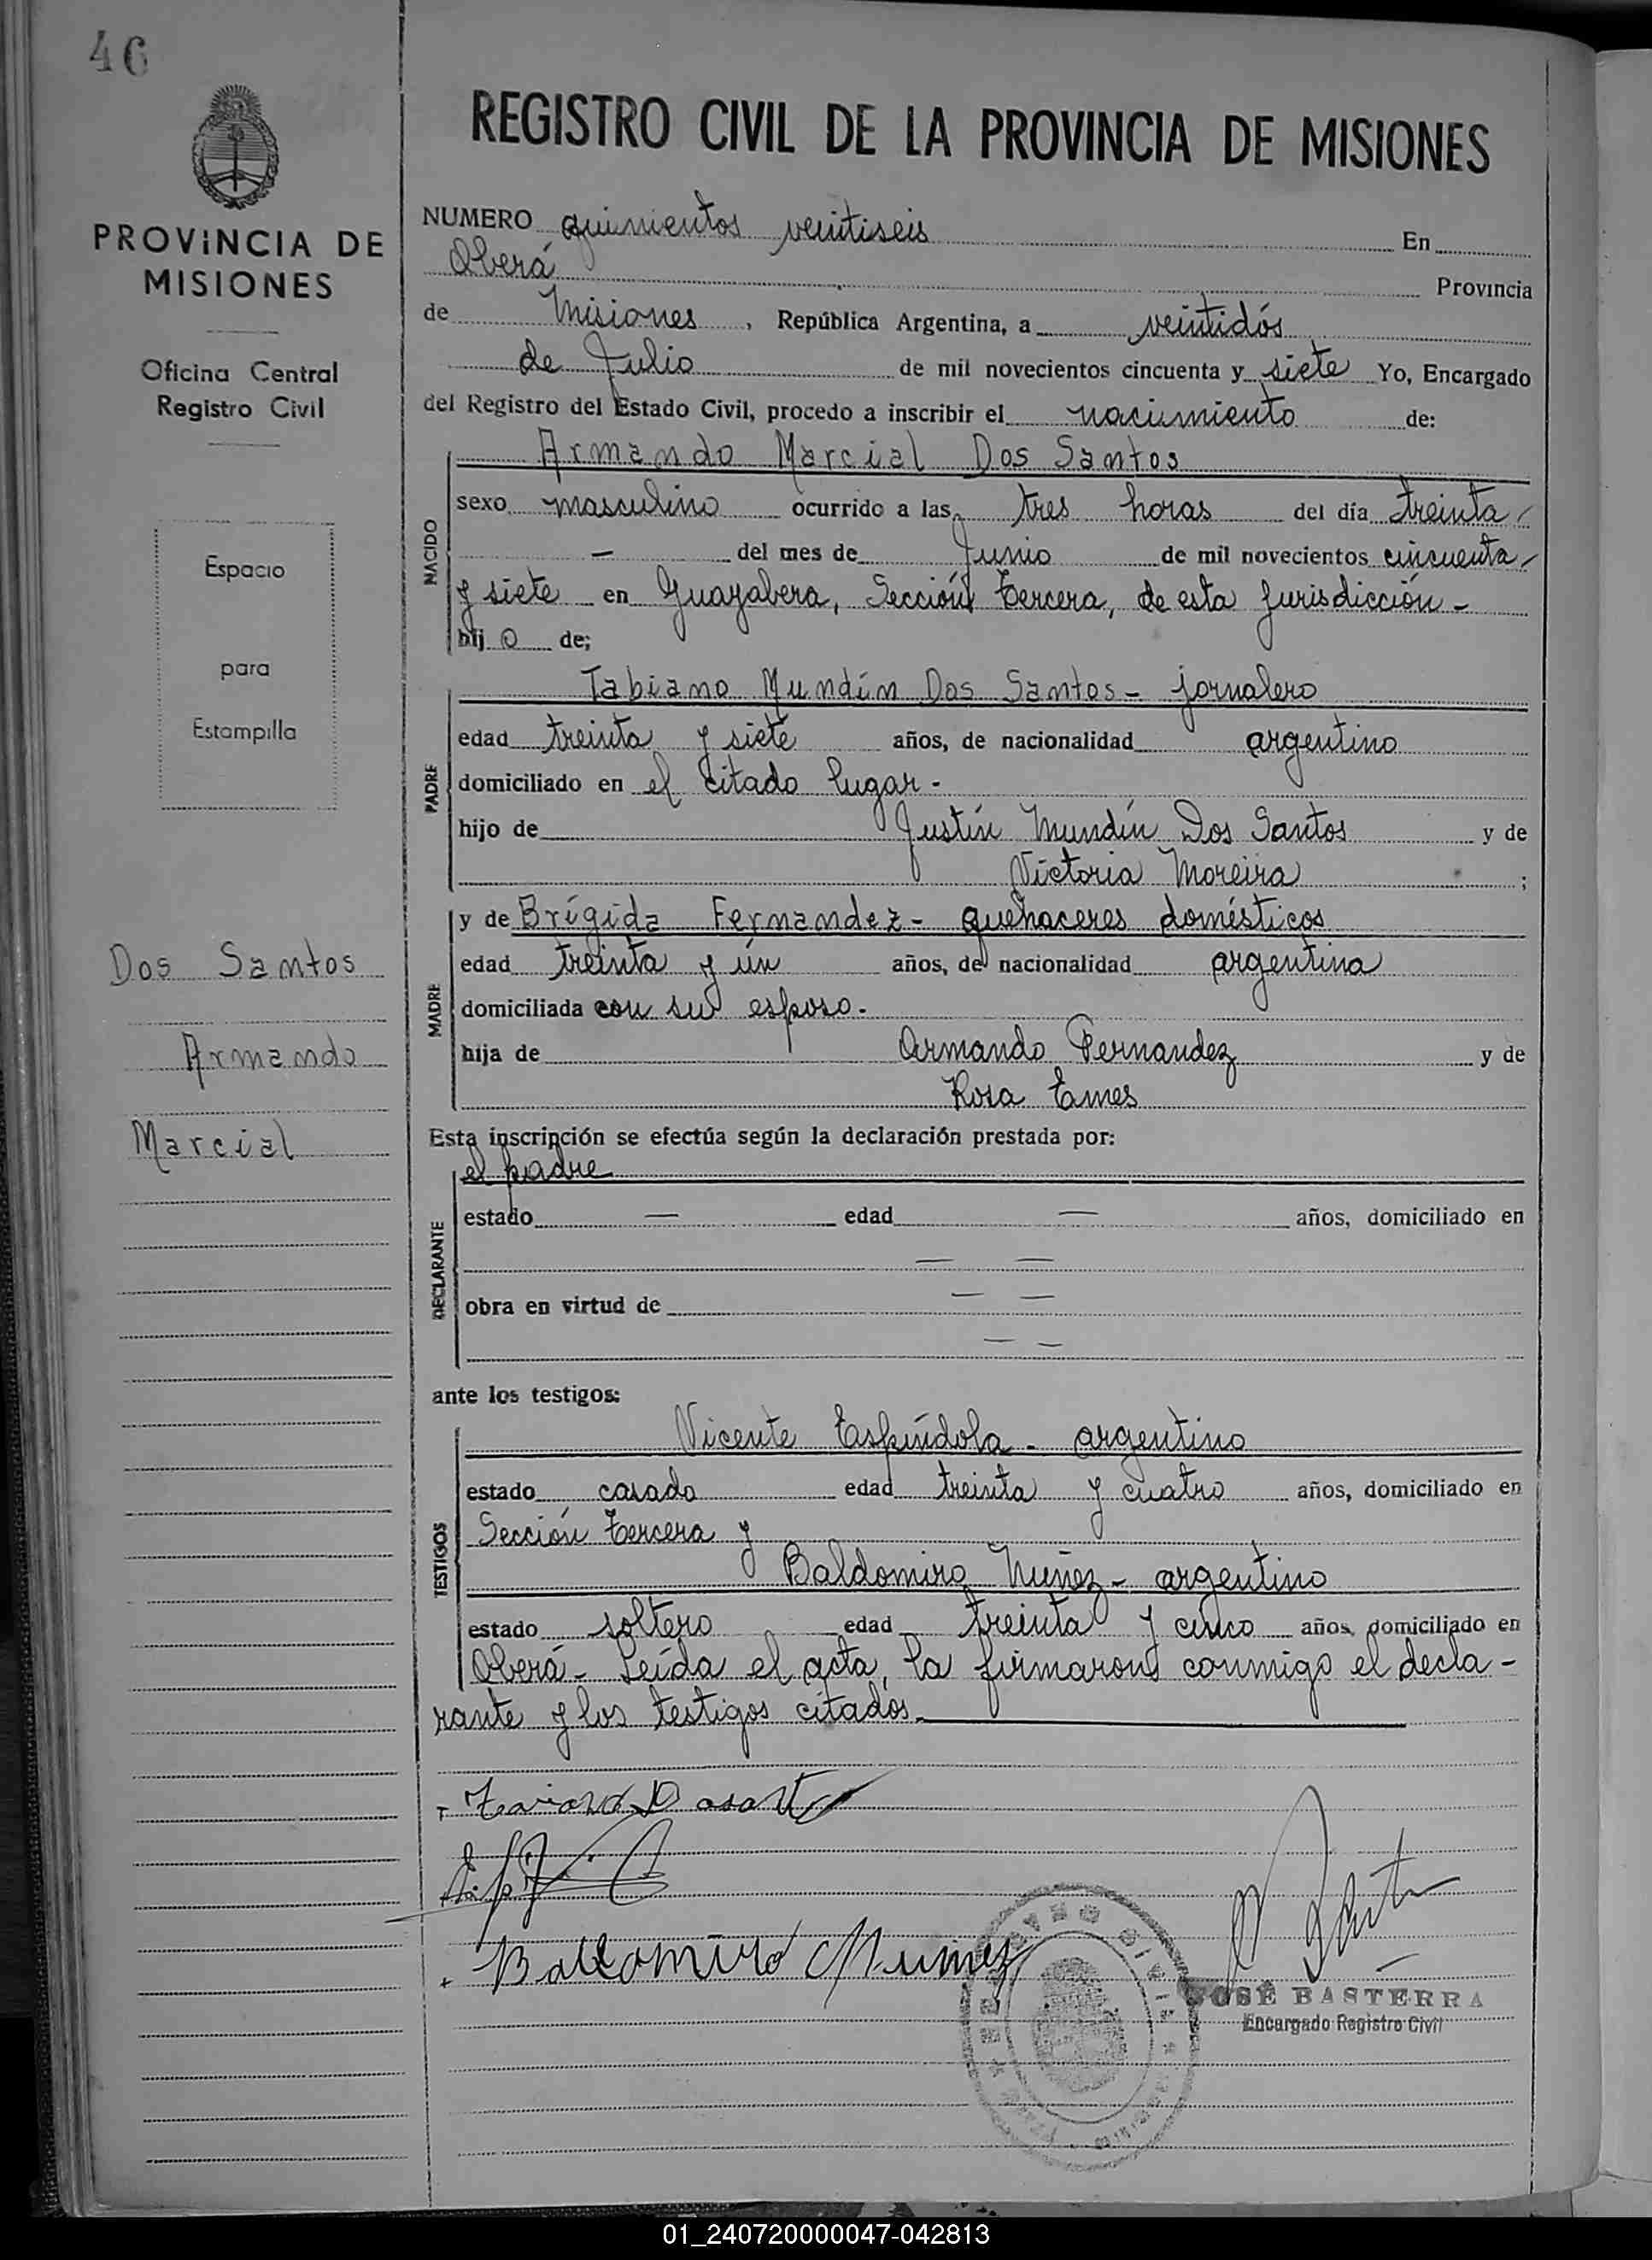 46
PROVINCIA DE
MISIONES
Oficina Central
Registro Civil
Espacio
para
Estampilla
Dos Santos
Armando
Marcial
REGISTRO CIVIL DE LA PROVINCIA DE MISIONES
NUMERO quinientos veintiseis En
Oberá Provincia
de Misiones, República Argentina, a veintidós
de Julio de mil novecientos cincuenta y siete Yo, Encargado
del Registro del Estado Civil, procedo a inscribir el nacimiento de:
Armando Marcial Dos Santos
NACIDO
sexo masculino ocurrido a las tres horas del día treinta
— del mes de Junio de mil novecientos cincuenta
y siete en Guayabera, Sección tercera, de esta jurisdicción -
hij o de;
Tabiano Mundín Dos Santos - jornalero
PADRE
edad treinta y siete años, de nacionalidad argentino
domiciliado en el citado lugar -
hijo de Justín Mundín Dos Santos y de
Victoria Moreira ;
y de Brígida Fernandez - quehaceres domésticos
MADRE
edad treinta y ún años, de nacionalidad argentina
domiciliada con su esposo.
hija de Armando Fernandez y de
Rosa Eames
Esta inscripción se efectúa según la declaración prestada por:
el padre
DECLARANTE
estado — edad — años, domiciliado en
— —
obra en virtud de — —
— —
ante los testigos:
Vicente Espíndola - argentino
TESTIGOS
estado casado edad treinta y cuatro años, domiciliado en
Sección tercera y
Baldomiro Nuñez - argentino
estado soltero edad treinta y cinco años, domiciliado en
Oberá - Leída el acta, la firmaron conmigo el decla-
rante y los testigos citados.
Baldomiro Nuñez
JOSÉ BASTERRA
Encargado Registro Civil
01_240720000047-042813